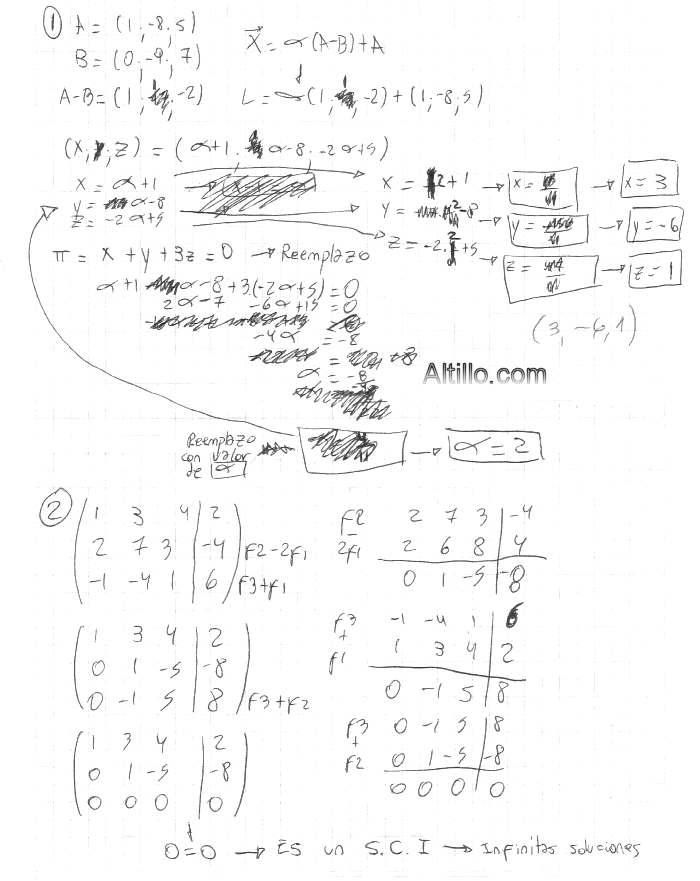 ① A = (1; -8; 5)
B = (0; -9; 7)
X⃗ = α(A-B)+A
A-B = (1; 1; -2)
L = α(1; 1; -2) + (1; -8; 5)
(X; y; z) = (α+1; α-8; -2α+5)
X = α+1
y = α-8
z = -2α+5
X = 2+1 → X = → X = 3
Y = 2-8 → y = → y = -6
Z = -2.2+5 → z = → z = 1
π = x + y + 3z = 0 → Reemplazo
α+1 α-8+3.(-2α+5) = 0
2α-7 -6α+15 = 0
-4α = -8
α = -8
(3, -6, 1)
Altillo.com
Reemplazo
con valor
de α
→ α = 2
②
1 3 4 | 2
2 7 3 | -4 F2-2F1
-1 -4 1 | 6 F3+F1
F2 2 7 3 | -4
-
2F1 2 6 8 | 4
0 1 -5 | -8
1 3 4 | 2
0 1 -5 | -8
0 -1 5 | 8 F3+F2
F3 -1 -4 1 | 6
+
F1 1 3 4 | 2
0 -1 5 | 8
F3 0 -1 5 | 8
+
F2 0 1 -5 | -8
0 0 0 | 0
1 3 4 | 2
0 1 -5 | -8
0 0 0 | 0
0=0 → ES un S.C.I → Infinitas soluciones